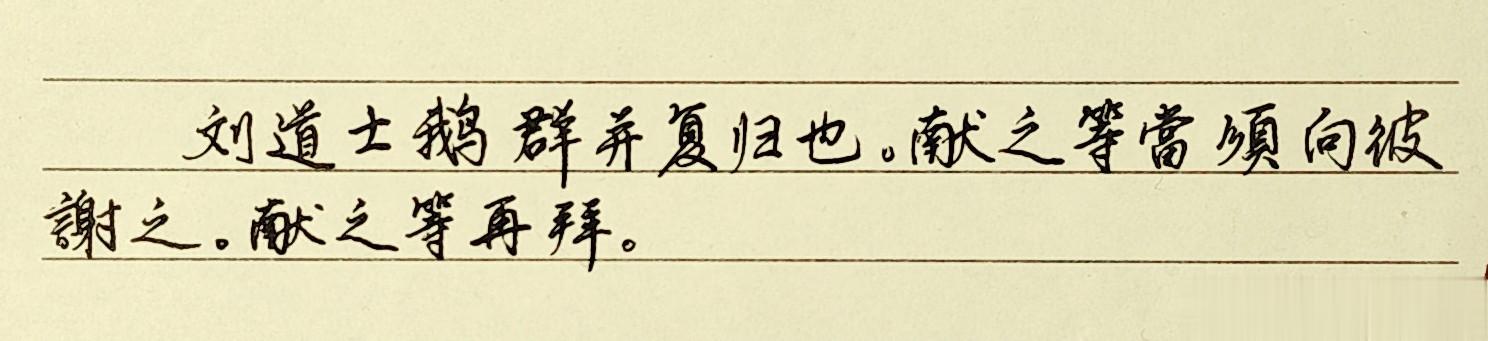 刘道士鹅群并复归也。献之等當須向彼
謝之。献之等再拜。